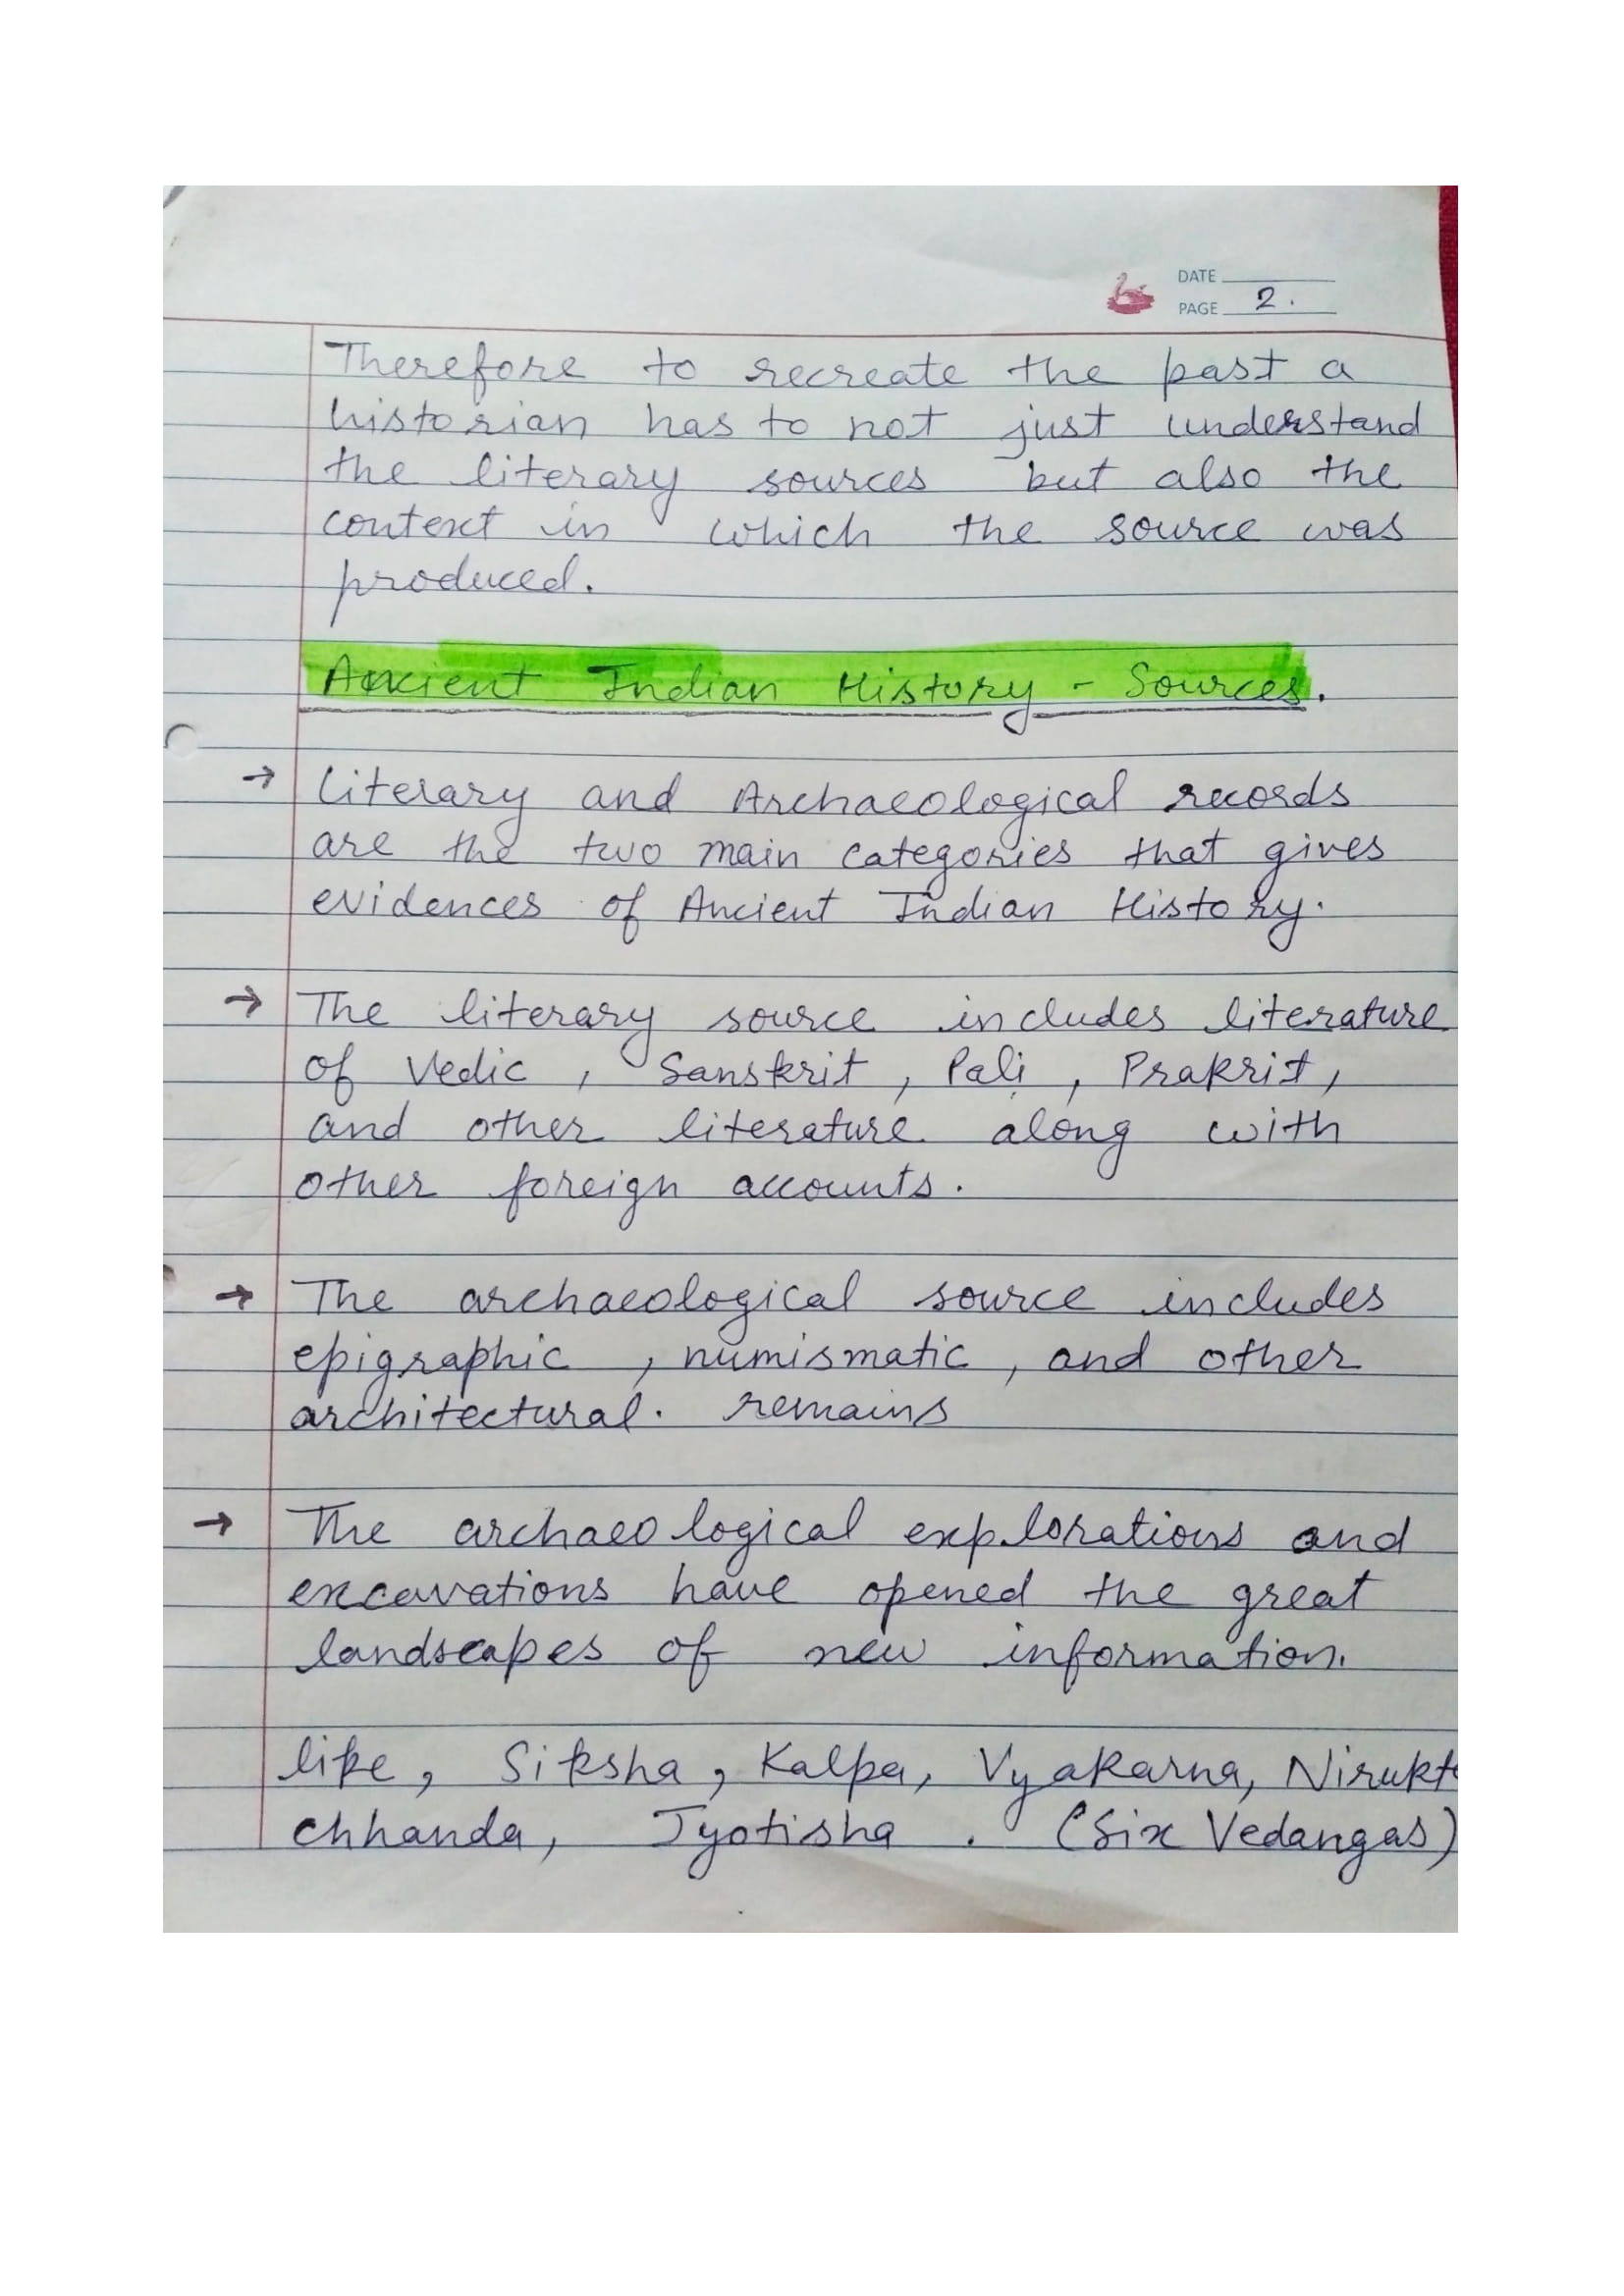 DATE
PAGE 2.
Therefore to recreate the past a
historian has to not just understand
the literary sources but also the
context in which the source was
produced.
Ancient Indian History - Sources.
→ Literary and Archaeological records
are the two main categories that gives
evidences of Ancient Indian History.
→ The literary source includes literature
of Vedic, Sanskrit, Pali, Prakrit,
and other literature along with
other foreign accounts.
→ The archaeological source includes
epigraphic, numismatic, and other
architectural. remains
→ The archaeological explorations and
excavations have opened the great
landscapes of new information.
like, Siksha, Kalpa, Vyakarna, Nirukt
chhanda, Jyotisha. (Six Vedangas)